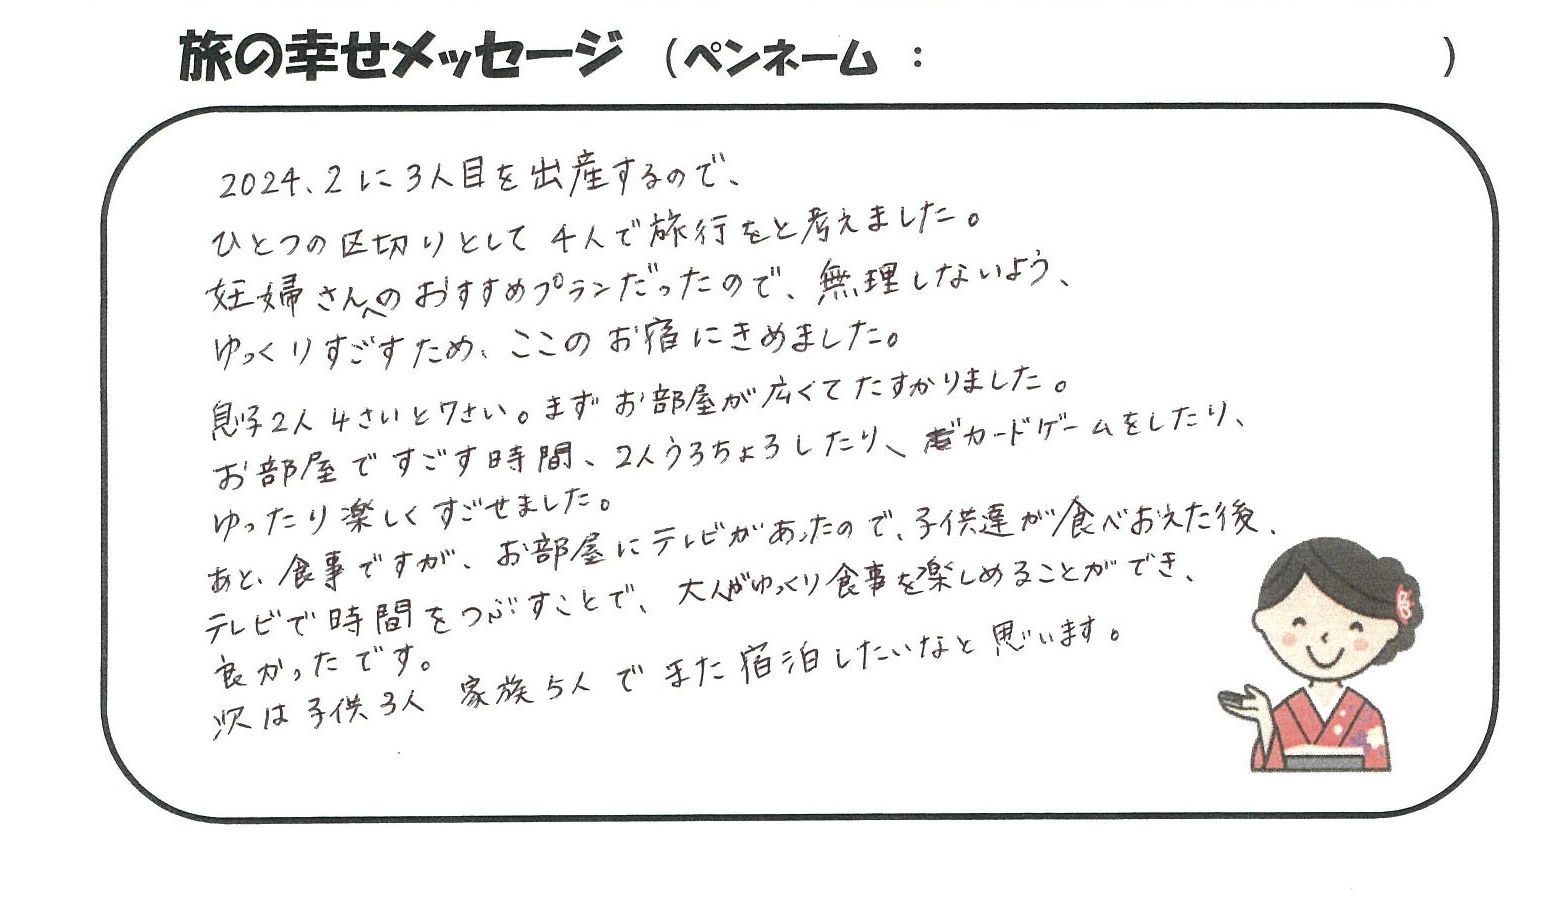 旅の幸せメッセージ（ペンネーム：　　　）
2024.2に3人目を出産するので、
ひとつの区切りとして4人で旅行をと考えました。
妊婦さんへのおすすめプランだったので、無理しないよう、
ゆっくりすごすため、ここのお宿にきめました。
息子2人4さいと7さい。まずお部屋が広くてたすかりました。
お部屋ですごす時間、2人うろちょろしたり、カードゲームをしたり、
ゆったり楽しくすごせました。
あと、食事ですが、お部屋にテレビがあったので、子供達が食べおえた後、
テレビで時間をつぶすことで、大人がゆっくり食事を楽しめることができ、
良かったです。
次は子供3人 家族5人でまた宿泊したいなと思います。